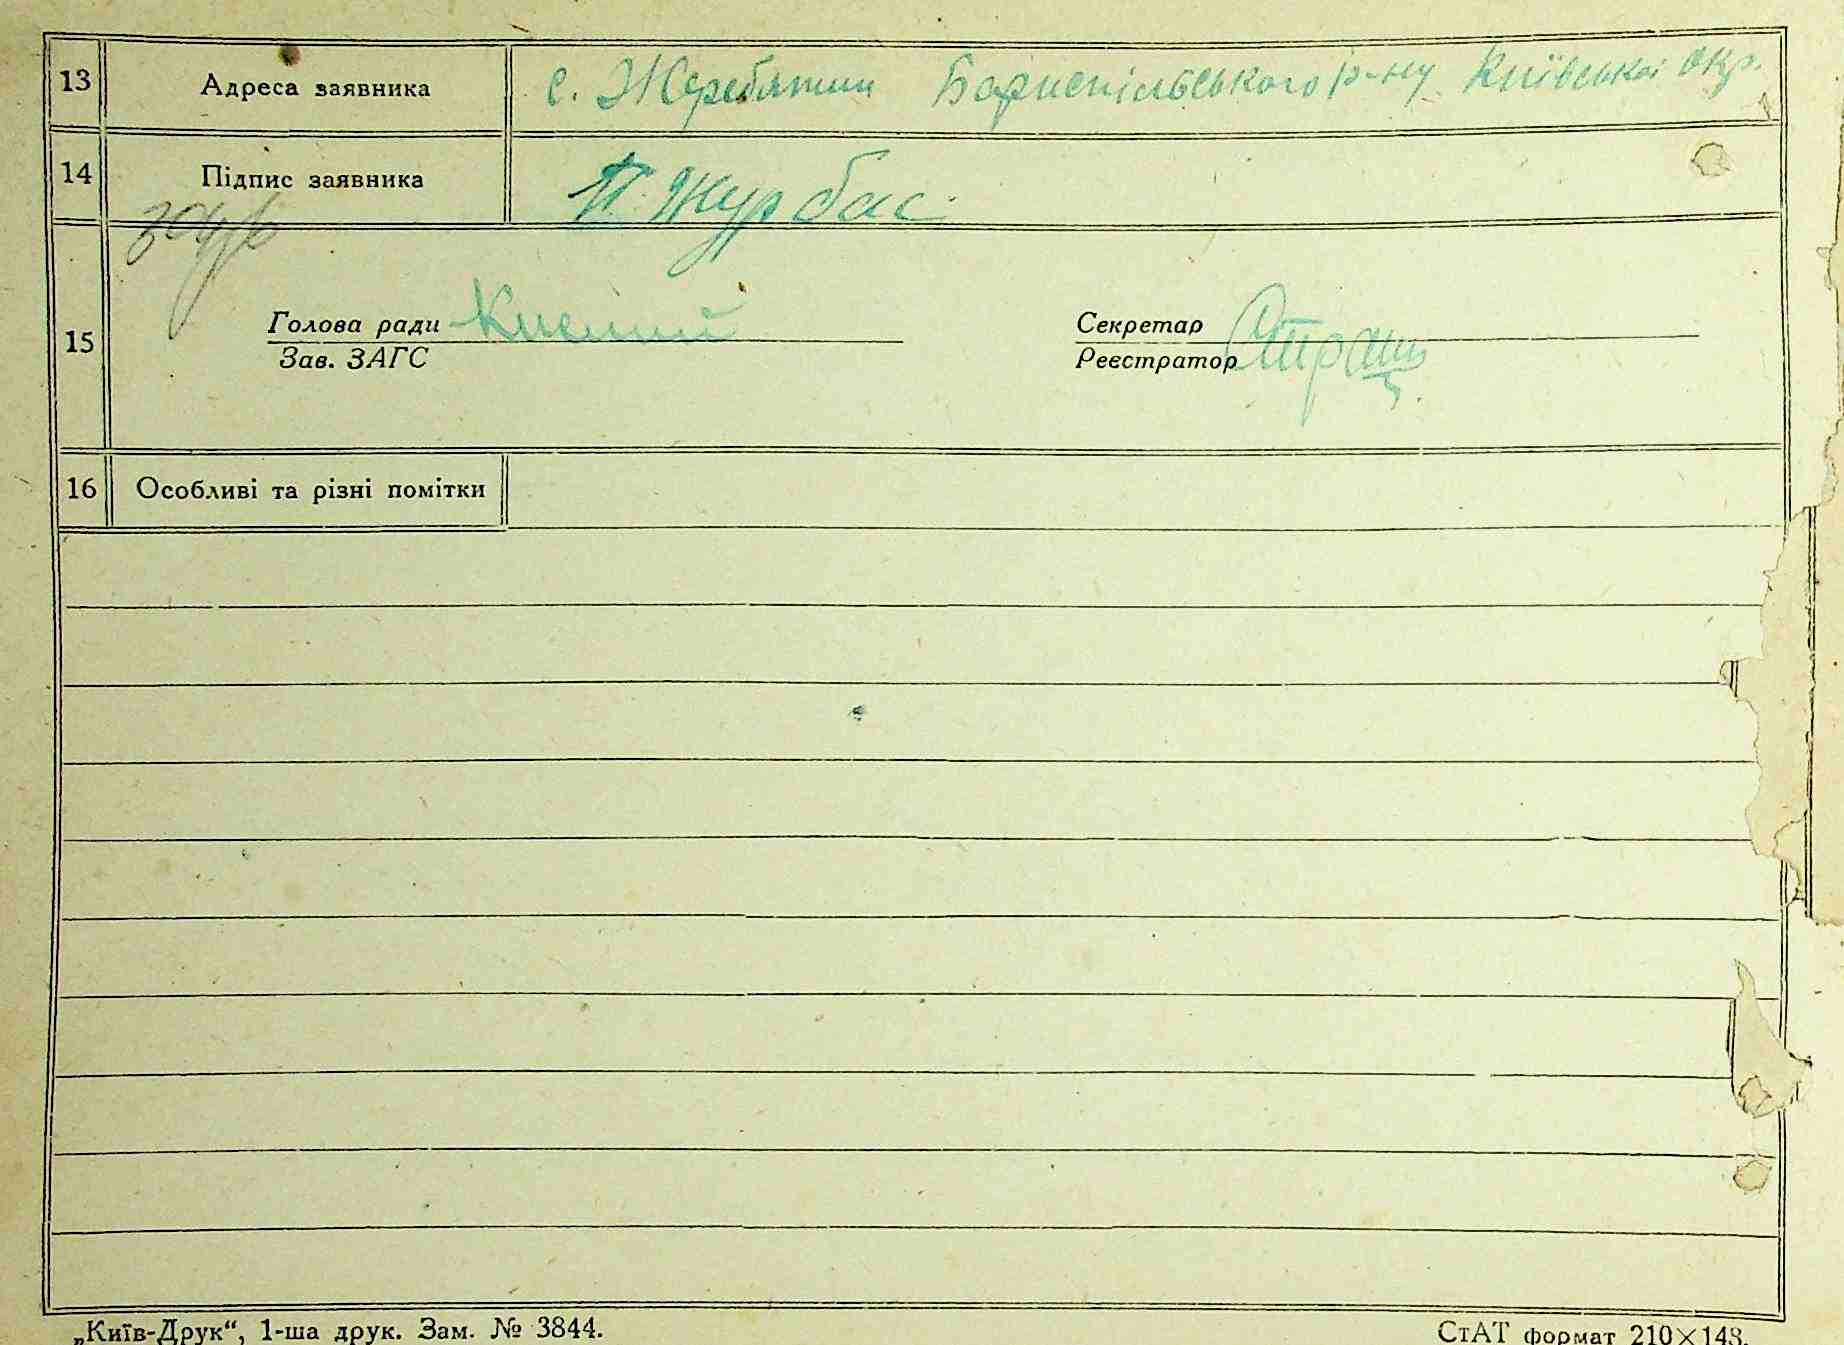 13 Адреса заявника с. Жеребятин Бориспільського р-ну Київської окр.
14 Підпис заявника П. Журбас
15 Голова ради Секретар
Зав. ЗАГС Реєстратор
16 Особливі та різні помітки
„Київ-Друк“, 1-ша друк. Зам. № 3844.
СтАТ формат 210×148.